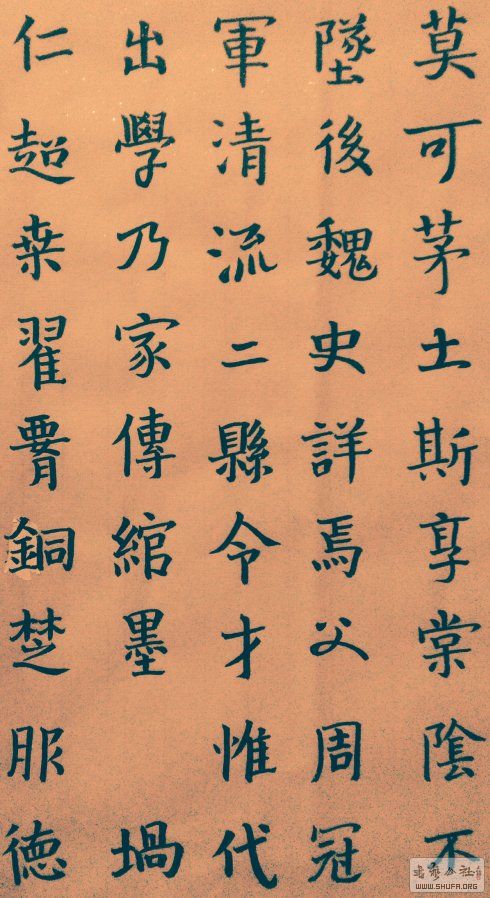 莫可茅土斯享棠陰不
墜後魏史詳焉父周冠
軍清流二縣令才惟代
出學乃家傳綰墨 堝
仁超桒翟銅椘服德
WWW.SHUFA.ORG